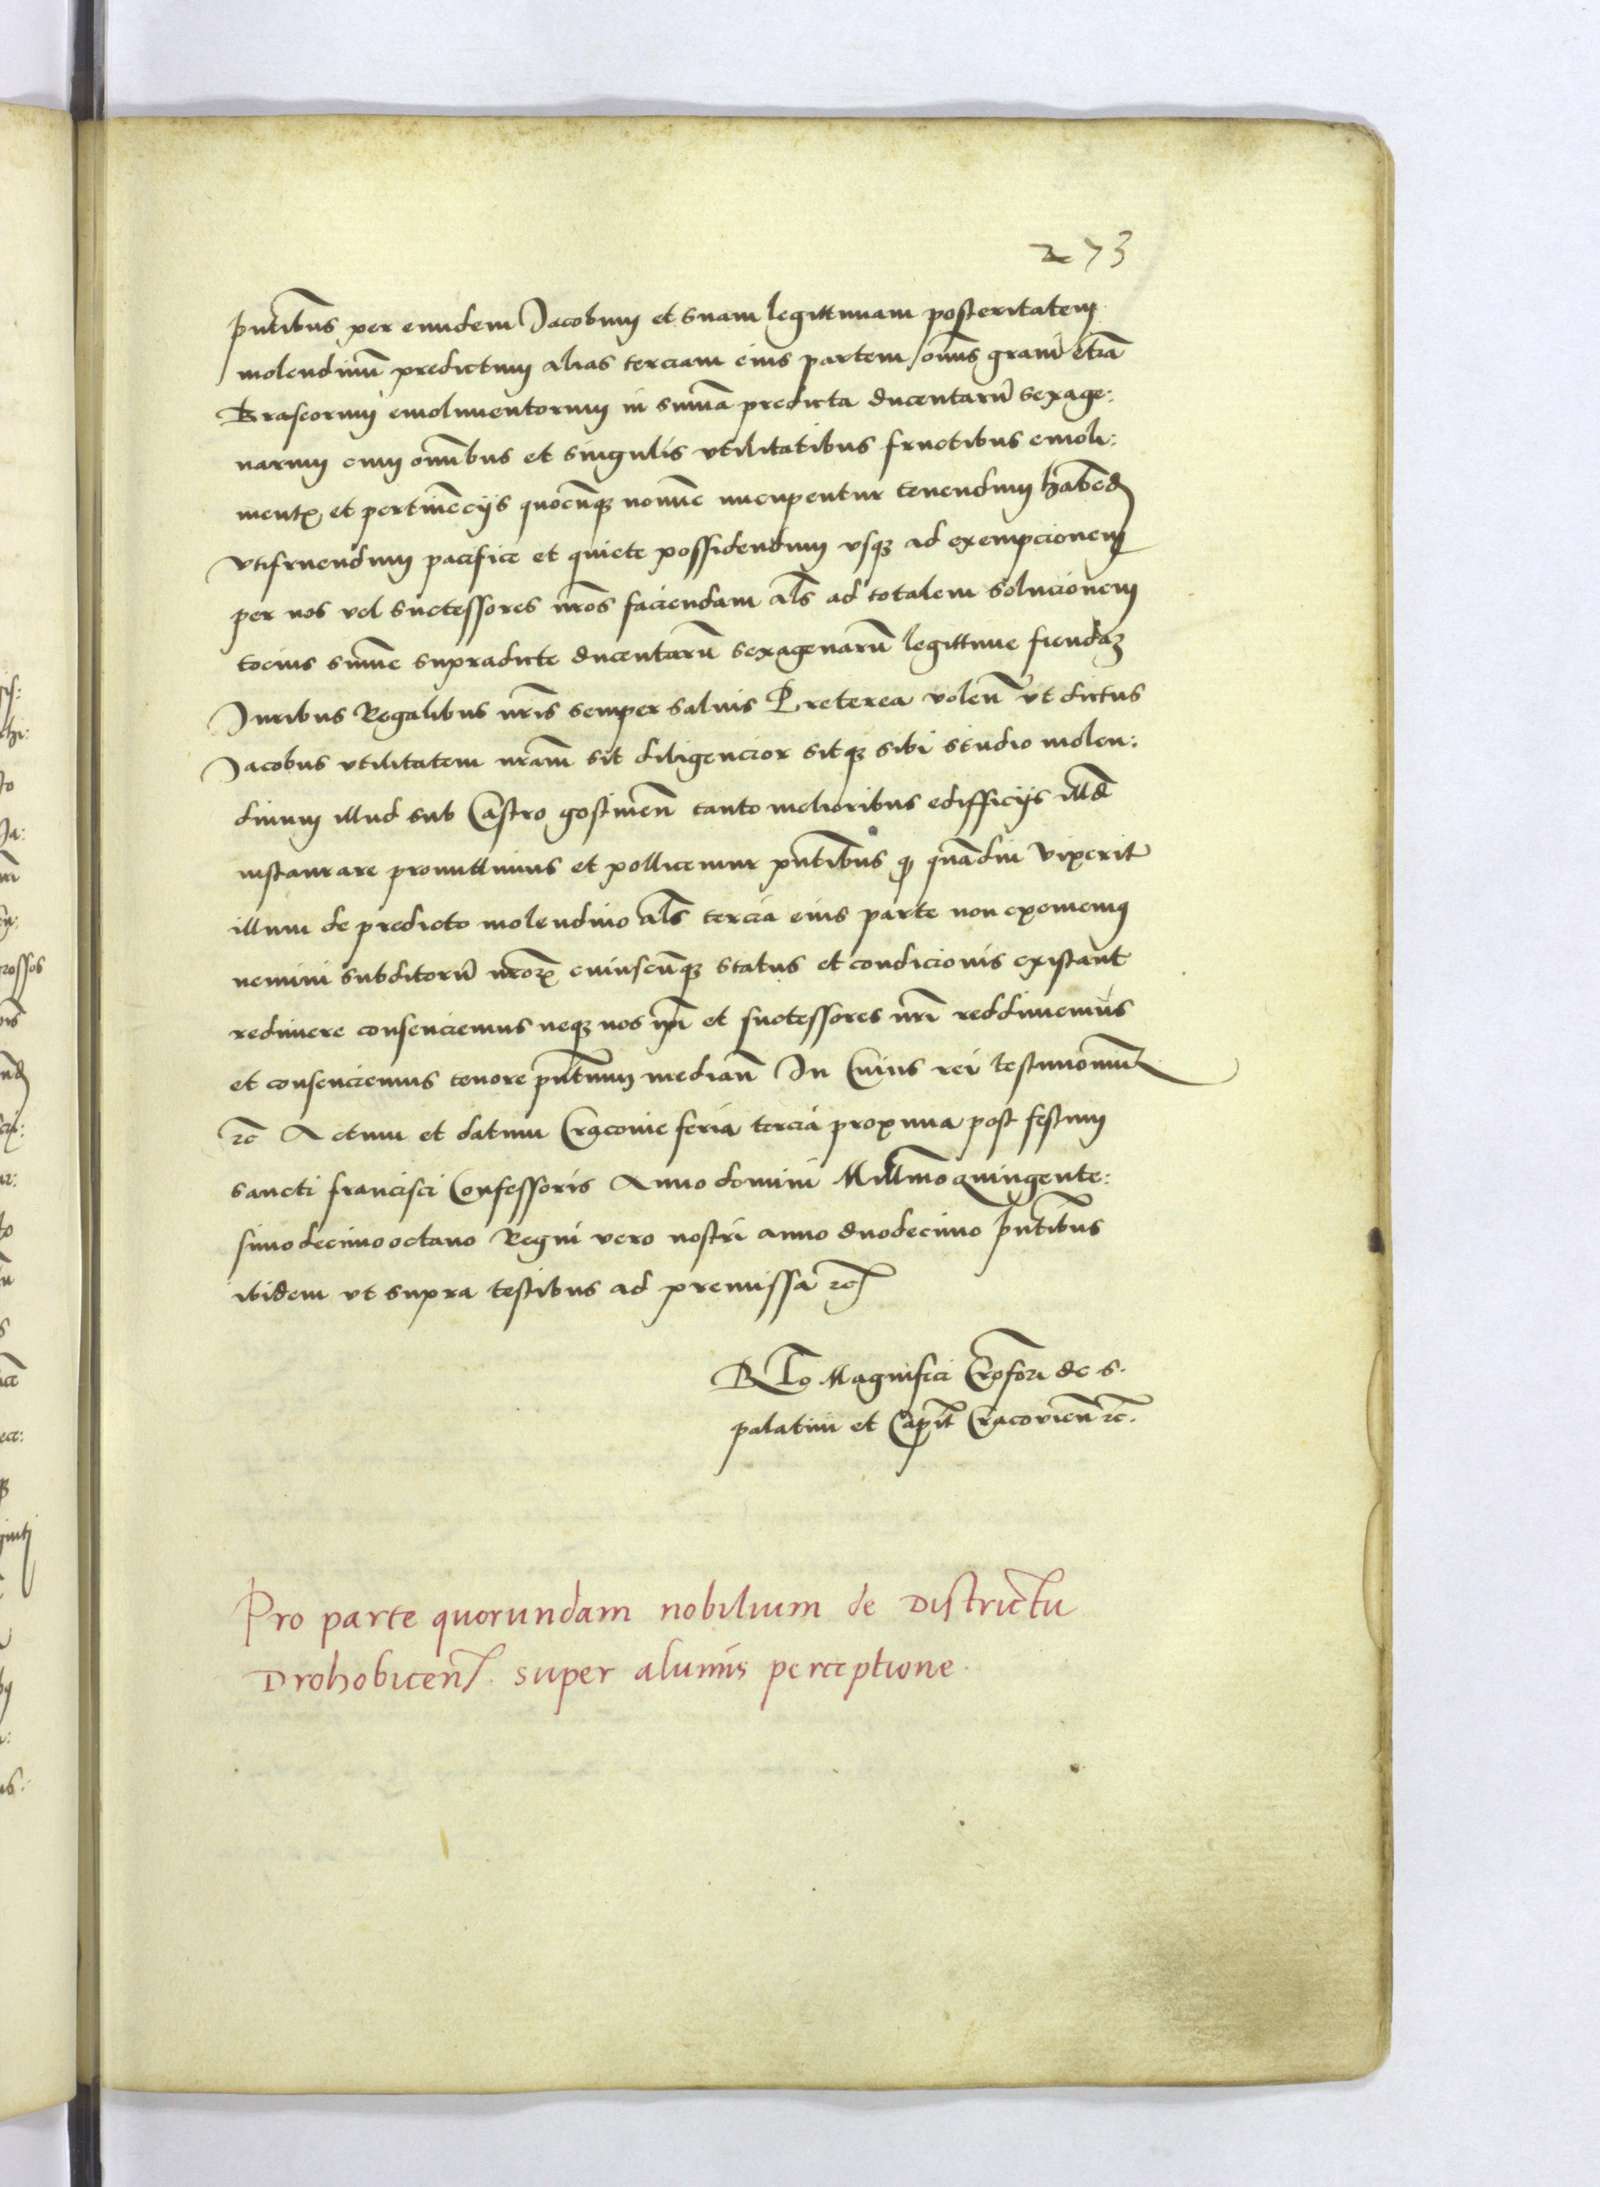 273
pntibus per eundem Jacobum et suam legittimam posteritatem
molendinū predictum alias terciam eius partem omīs grani etiā
Braseorum emolimentorum in sūma predicta ducentarū sexage:
narum cum omībus et singulis vtilitatibus fructibus emoli:
mentꝭ et pertinēcijs quocūqꝫ nomīe nuncupentur tenendum habend
vtifruendum pacifice et quiete possidendum vsqꝫ ad exempcionem
per nos vel successores nros faciendam als ad totalem solucionem
tocius sūme supradicte ducentarū sexagenarū legittime fiendaꝫ
Juribus Regalibus nris semper saluis Preterea volen vt dictus
Jacobus vtilitatem nram sit diligencior sitqꝫ sibi studio molen:
dinum illud sub Castro gostinen tanto melioribus edifficijs illd
instaurare promittimus et pollicemur pntibus qꝫ quādiu vixerit
illum de predicto molendino als tercia eius parte non exememus
nemini subditorū nrorꝫ cuiuscūqꝫ status et condicionis existant
redimere consenciemus neqꝫ nos ipi et successores nri reddimemus
et consenciemus tenore pntium median In Cuius rei testimoniū
⁊c Actum et datum Cracouie feria tercia proxima post festum
sancti francisci Confessoris Anno domini Millmoquingente:
simodecimooctauo Regni vero nostri anno duodecimo pntibus
ibidem vt supra testibus ad premissa ⁊c
Rᵗᵒ Magnifici Crofori de S.
palatini et Capit Cracovien ⁊c.
Pro parte quorundam nobilium de Districtu
Drohobicen. super aluminis perceptione.